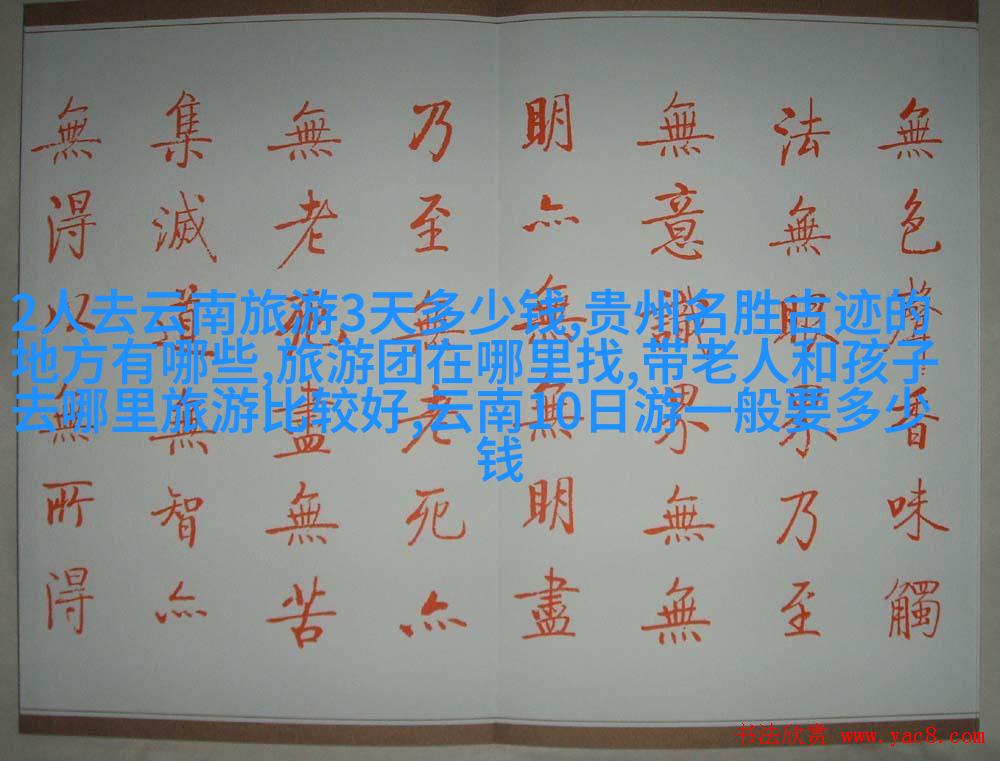 無色聲香味觸
法無眼界乃至
無意識界無無
明亦無無明盡
乃至無老死亦
無老死盡無苦
集滅道無智亦
無得以無所得
2人去云南旅游3天多少钱,贵州名胜古迹的
地方有哪些,旅游团在哪里找,带老人和孩子
去哪里旅游比较好,云南10日游一般要多少
钱
书法欣赏 www.yac8.com